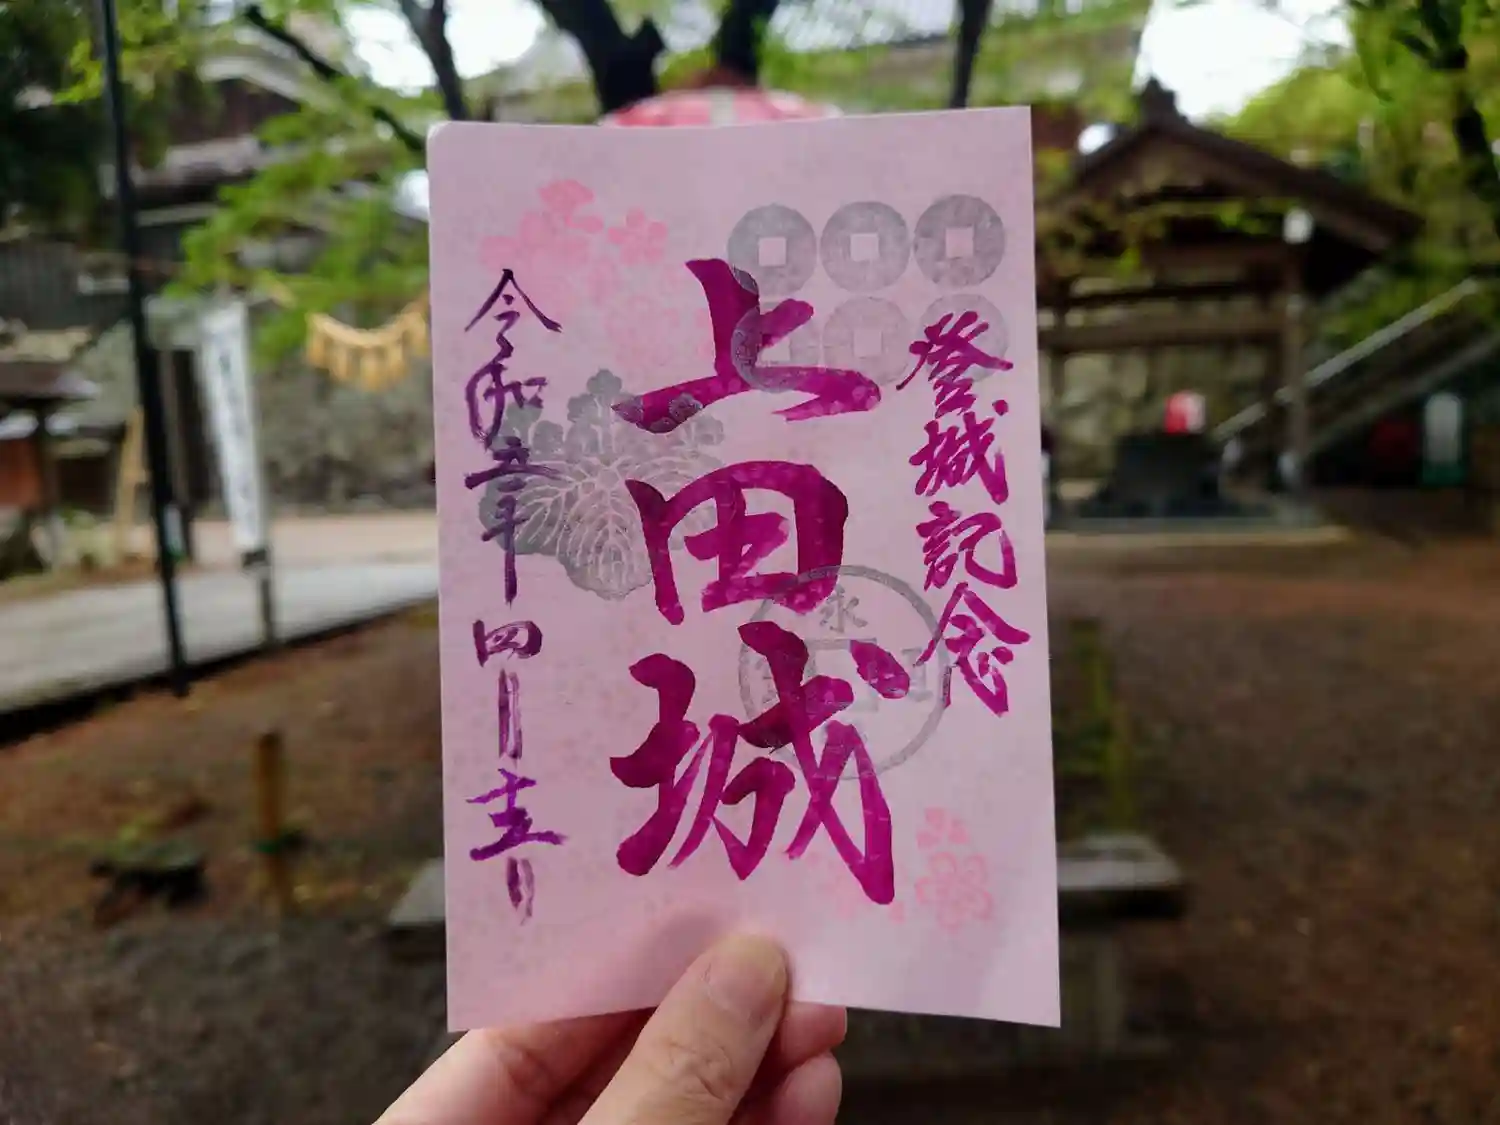 登城記念
上田城
令和五年四月十五日
永